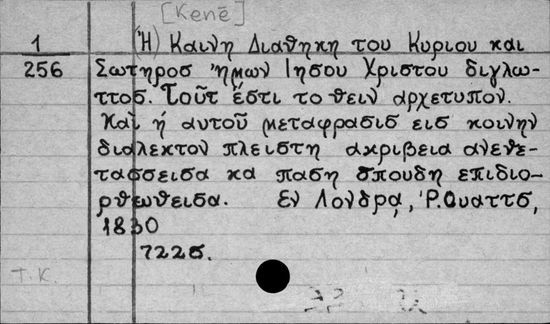 [Kenē]
1 (Ἡ) Καινη Διαθηκη του Κυριου και
256 Σωτηροσ ἡμων Ιησου Χριστου διγλω-
ττοσ. Τοῦτ ἔστι το θειν αρχετυπον.
Και ἡ αυτοῦ μεταφρασισ εισ κοινην
διαλεκτον πλειστη ακριβεια ανεθε-
τασσεισα κα παση σπουδη επιδιο-
ρθωθεισα. Εν Λονδρα, Ῥ. Ουαττσ,
1830
722σ.
T.K.